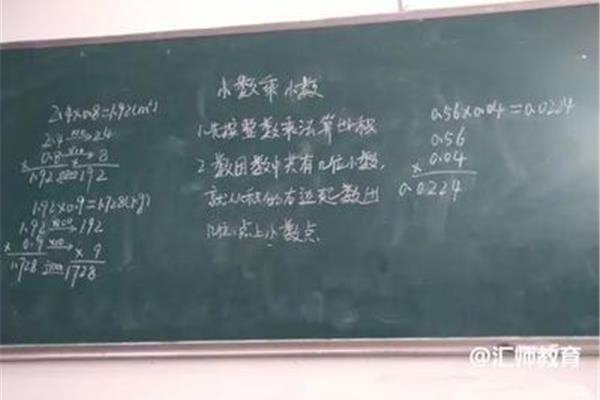 小数乘小数
2.4×0.8=1.92(m²)
2.4 ×10→ 24
× 0.8 ×10→ × 8
1.92 ÷100← 192
1.92×0.9=1.728(kg)
1.92 ×100→ 192
× 0.9 ×10→ × 9
1.728 ÷1000← 1728
1.先按整数乘法算出积
2.数因数中共有几位小数,
就从积的右边起数出
几位,点上小数点
0.56×0.04=0.0224
0.56
× 0.04
0.0224
@汇师教育